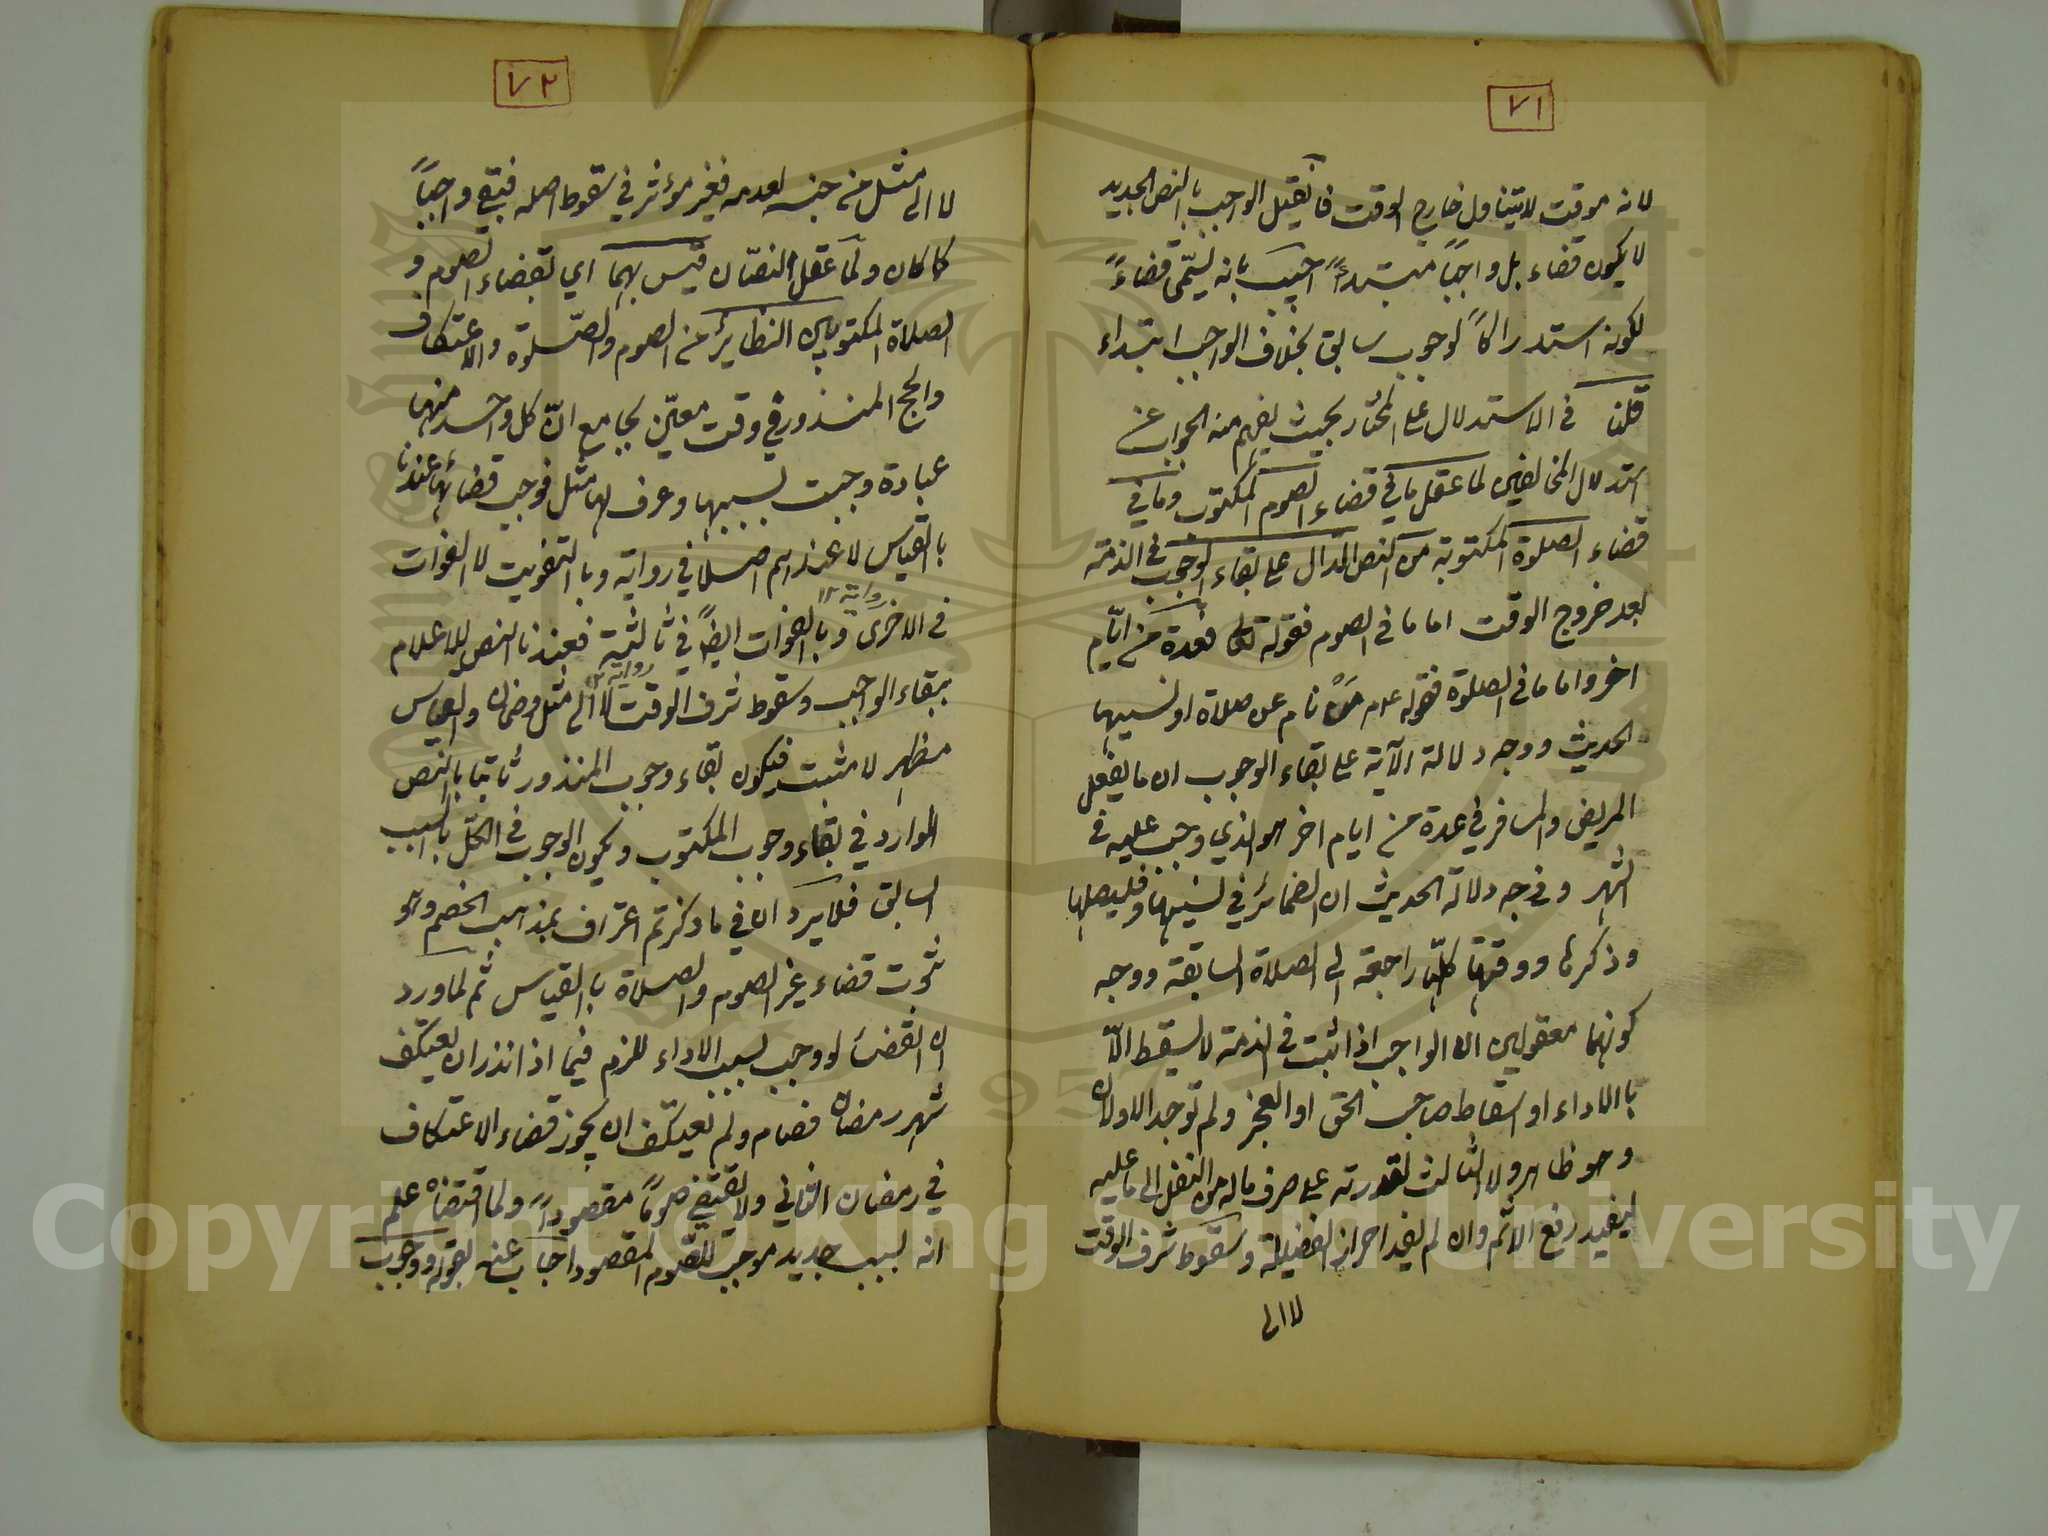 ٧١
لانه موقت لا يتناول خارج الوقت فان قيل الواجب بالنص الجديد
لا يكون قضاء بل واجبًا مبتدأً اجيب بانه يسمّى قضاءً
لكونه استدراكًا لوجوب سابق بخلاف الواجب ابتداء
قلنا في الاستدلال على المختار بحيث يفهم منه الجواب عن
استدلال المخالفين لما عقل ما في قضاء الصوم المكتوب وما في
قضاء الصلوة المكتوبة من النص الدال على بقاء الوجوب في الذمة
بعد خروج الوقت اما ما في الصوم فقوله تعالى فعدة من ايّام
اخر واما ما في الصلوة فقوله عم مَنْ نام عن صلاة او نسيها
الحديث ووجه دلالة الآية على بقاء الوجوب ان ما يفعل
المريض والمسافر في عدة من ايام اخر هو الذي وجب عليه في
الشهر ووجه دلالة الحديث ان الضمائر في نسيها وفليصلها
وذكرها ووقتها كلّها راجعة الى الصلاة السابقة ووجه
كونهما معقولين ان الواجب اذا ثبت في الذمة لا يسقط الّا
بالاداء او اسقاط صاحب الحق او العجز ولم توجد الاولان
وهو ظاهر ولا الثالث لقدرته على صرف ماله من النفل الى ما عليه
ليفيد رفع الاثم وان لم يفد احراز الفضيلة وسقوط شرف الوقت
لا الى
٧٢
لا الى مثل من جنسه لعدمه فغير مؤثر في سقوط اصله فبقي واجبًا
كما كان ولما عقل النصّان قيس بهما اي بقضاء الصوم و
الصلاة المكتوبين النظائر من الصوم والصّلوة والاعتكاف
والحج المنذور في وقت معيّن بجامع انّ كل واحد منها
عبادة وجبت بسببها وعرف لها مثل فوجب قضائها عندنا
بالقياس لا عندهم اصلا في رواية وبالتفويت لا الفوات
في الاخرى وبالفوات ايضًا في ثالثة فعندنا النص للاعلام
رواية ١٢
رواية ١٢
ببقاء الواجب وسقوط شرف الوقت لا الى مثل وضمان والقياس
مظهر لا مثبت فيكون بقاء وجوب المنذور ثابتا بالنص
الوارد في بقاء وجوب المكتوب ويكون الوجوب في الكلّ بالسبب
السابق فلا يرد ان في ما ذكرتم اعتراف بمذهب الخصم وهو
ثبوت قضاء غير الصوم والصلاة بالقياس ثم لما ورد
ان القضاء لو وجب بسبب الاداء للزم فيما اذا نذر ان يعتكف
شهر رمضان فصام ولم يعتكف ان يجوز قضاء الاعتكاف
في رمضان الثاني ولا يقتضي صومًا مقصودًا ولما اقتضاه علم
انه لسبب جديد موجب للصوم المقصود اجاب عنه بقوله ووجوب
Copyright © King Saud University